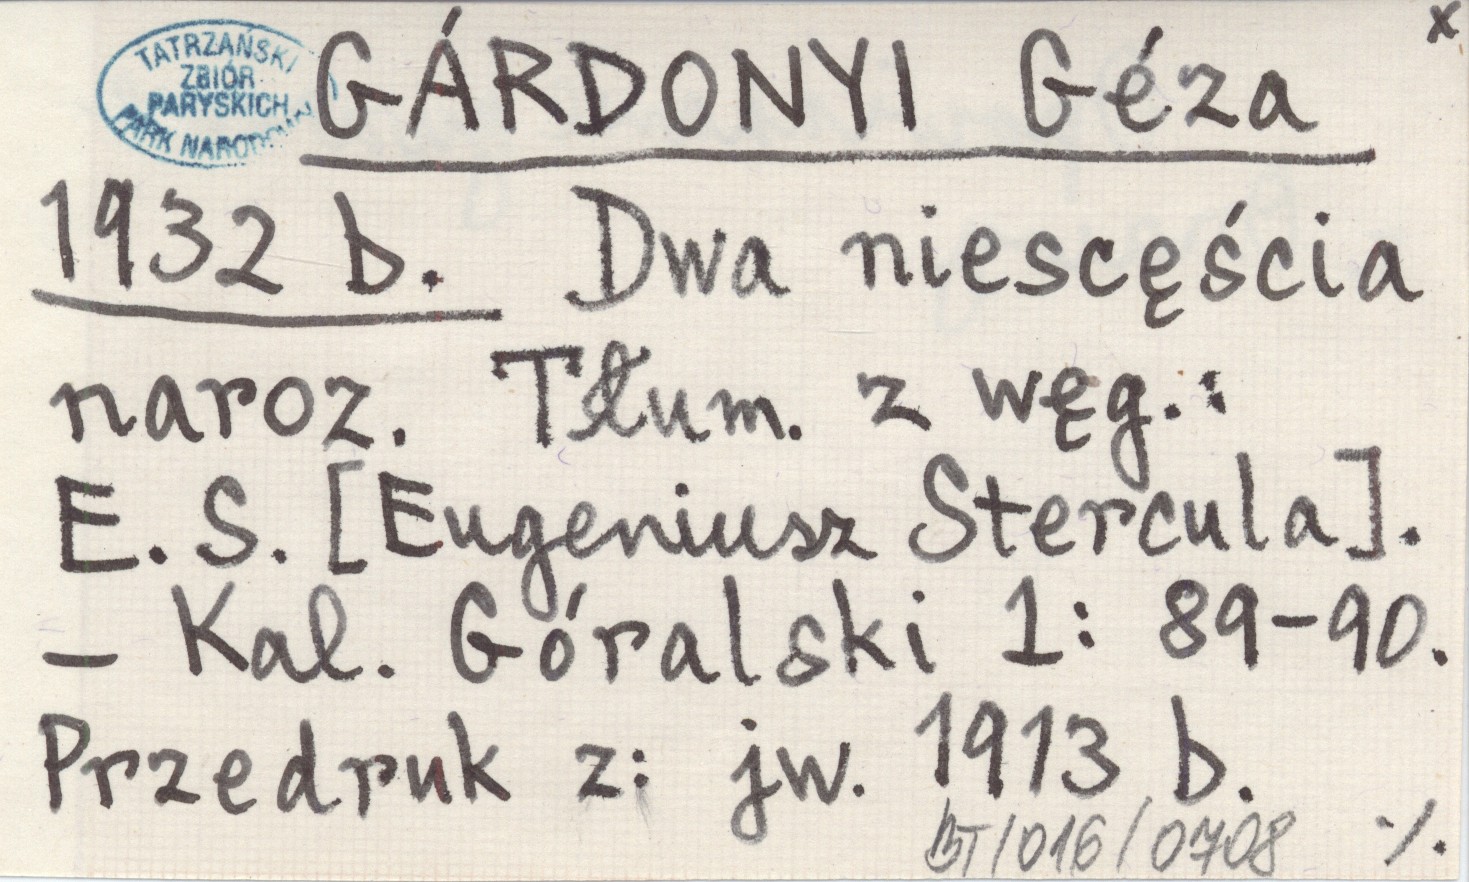 x
TATRZAŃSKI
ZBIÓR
PARYSKICH
PARK NARODOWY
GÁRDONYI Géza
1932 b. Dwa niescęścia
naroz. Tłum. z węg.:
E. S. [Eugeniusz Stercula].
— Kal. Góralski 1: 89-90.
Przedruk z: jw. 1913 b.
BT/016/0708 ·/.